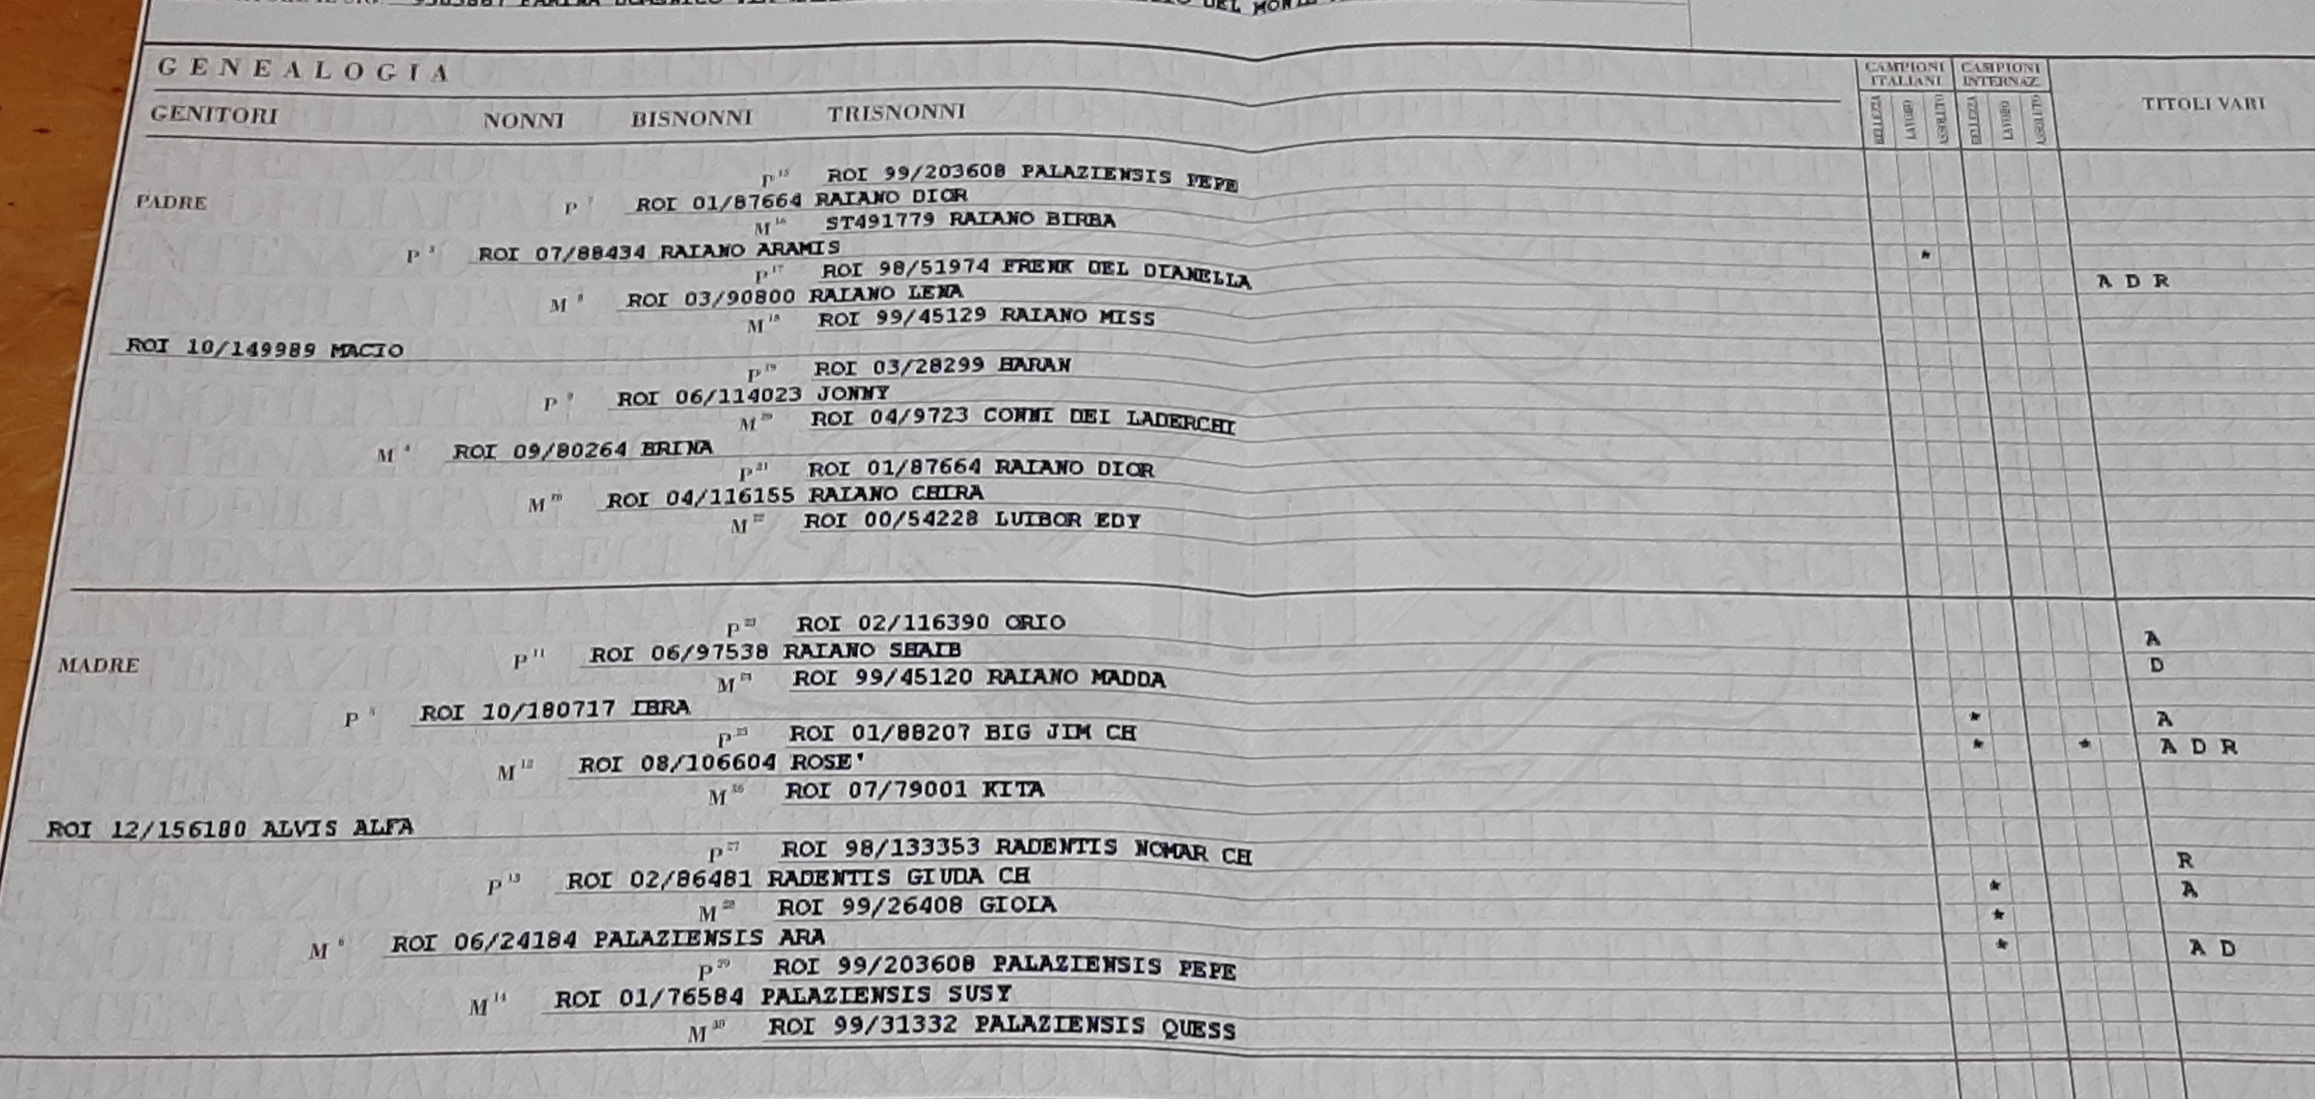 DEL MONTE
GENEALOGIA
CAMPIONI ITALIANI CAMPIONI INTERNAZ.
GENITORI NONNI BISNONNI TRISNONNI
BELLEZZA LAVORO ASSOLUTO BELLEZZA LAVORO ASSOLUTO TITOLI VARI
P 15 ROI 99/203608 PALAZIENSIS PEPE
PADRE P 7 ROI 01/87664 RAIANO DIOR
M 16 ST491779 RAIANO BIRBA
P 3 ROI 07/88434 RAIANO ARAMIS *
P 17 ROI 98/51974 FRENK DEL DIANELLA A D R
M 8 ROI 03/90800 RAIANO LENA
M 18 ROI 99/45129 RAIANO MISS
ROI 10/149989 MACIO
P 19 ROI 03/28299 HARAN
P 9 ROI 06/114023 JONNY
M 20 ROI 04/9723 CONNI DEI LADERCHI
M 4 ROI 09/80264 BRINA
P 21 ROI 01/87664 RAIANO DIOR
M 10 ROI 04/116155 RAIANO CHIRA
M 22 ROI 00/54228 LUIBOR EDY
P 23 ROI 02/116390 ORIO A
MADRE P 11 ROI 06/97538 RAIANO SHAIB D
M 24 ROI 99/45120 RAIANO MADDA
P 5 ROI 10/180717 IBRA * A
P 25 ROI 01/88207 BIG JIM CH * * A D R
M 12 ROI 08/106604 ROSE'
M 26 ROI 07/79001 KITA
ROI 12/156180 ALVIS ALFA
P 27 ROI 98/133353 RADENTIS NOMAR CH R
P 13 ROI 02/86481 RADENTIS GIUDA CH * A
M 28 ROI 99/26408 GIOIA *
M 6 ROI 06/24184 PALAZIENSIS ARA * A D
P 29 ROI 99/203608 PALAZIENSIS PEPE
M 14 ROI 01/76584 PALAZIENSIS SUSY
M 30 ROI 99/31332 PALAZIENSIS QUESS